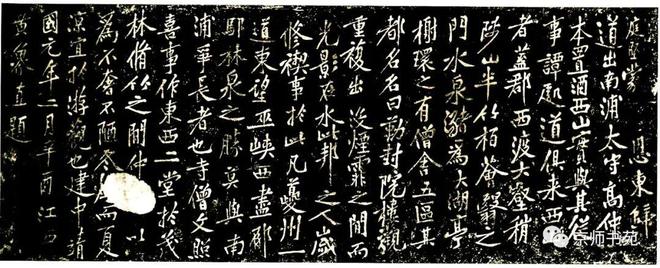 庭堅蒙 恩東歸
道出南浦太守高仲
本置酒西山實與其從
事譚處道俱来西
者蓋郡西渡大壑稍
陟山半竹栢薈翳之
門水泉瀦為大湖亭
榭環之有僧舍五區其
都名名曰勒封院樓觀
重複出沒煙霏之間而
光影在水此邦之人歲
修禊事於此凡夔州一
道東望巫峽西盡郁
鄢林泉之勝莫與南
浦爭長者也寺僧文照
喜事作東西二堂於茂
林脩竹之間仲以
為不奢不陋冬而夏
涼宜於游觀也建中靖
國元年二月辛酉江西
黃魯直題
京师书苑